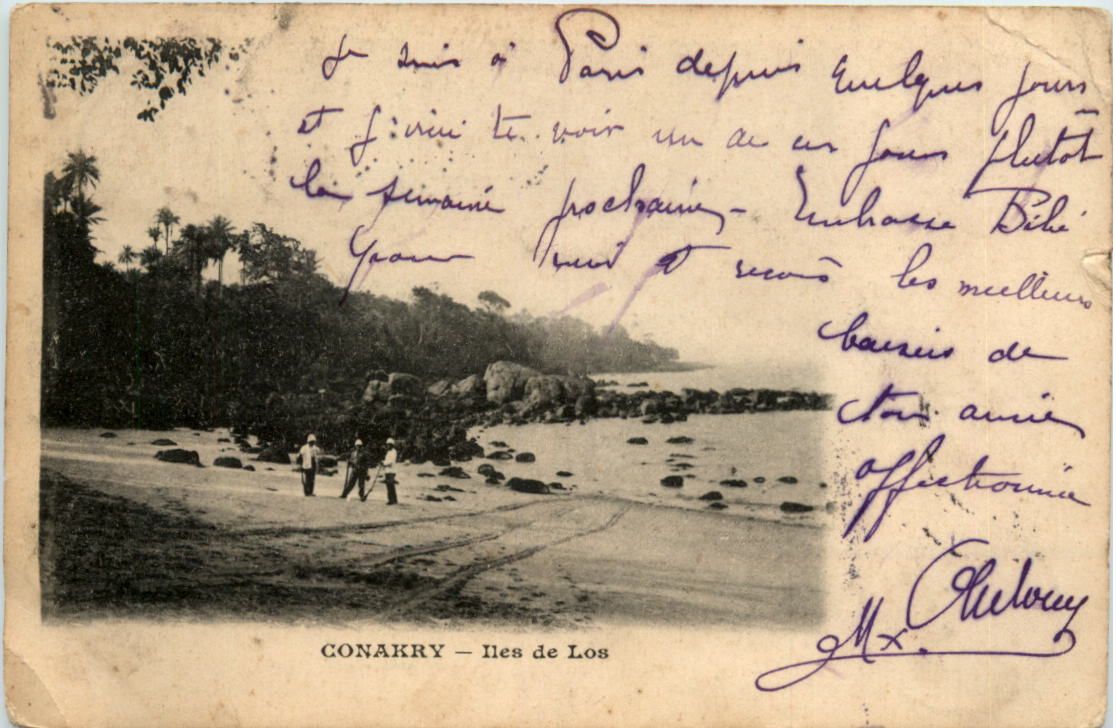 Je suis à Paris depuis quelques jours
et j'irai te voir un de ces jours plutôt
la semaine prochaine - Embrasse Bébé
pour moi et reçois les meilleurs
baisers de
ton amie
affectionnée
M
CONAKRY — Iles de Los